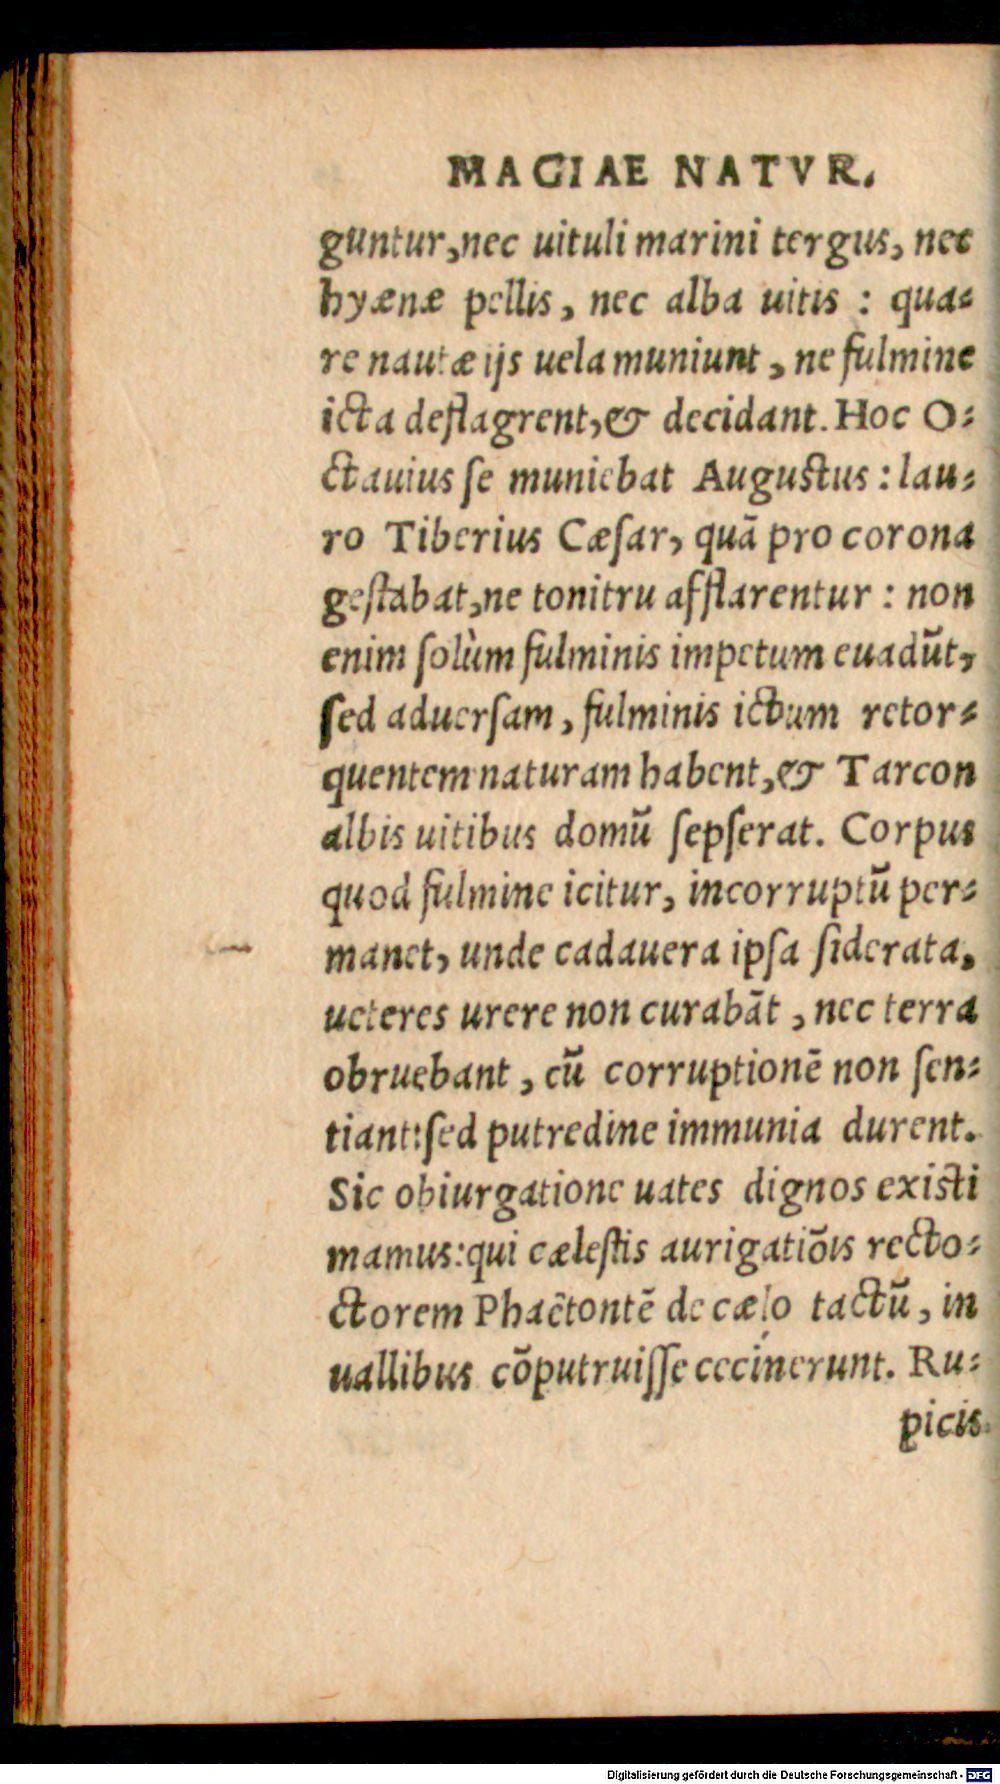 MAGIAE NATVR.
guntur, nec uituli marini tergus, nec
hyænæ pellis, nec alba uitis : qua-
re nautæ ijs uela muniunt, ne fulmine
icta deflagrent, & decidant. Hoc O-
ctauius se muniebat Augustus : lau-
ro Tiberius Cæsar, quā pro corona
gestabat, ne tonitru afflarentur : non
enim solùm fulminis impetum euadūt,
sed aduersam, fulminis ictum retor-
quentem naturam habent, & Tarcon
albis uitibus domū sepserat. Corpus
quod fulmine icitur, incorruptū per-
manet, unde cadauera ipsa siderata,
ueteres urere non curabāt, nec terra
obruebant, cū corruptionē non sen-
tiant: sed putredine immunia durent.
Sic obiurgatione uates dignos existi
mamus: qui cælestis aurigatiōis recto-
ctorem Phaëtontē de cælo tactū, in
uallibus cōputruisse cecinerunt. Ru-
picis
Digitalisierung gefördert durch die Deutsche Forschungsgemeinschaft - DFG